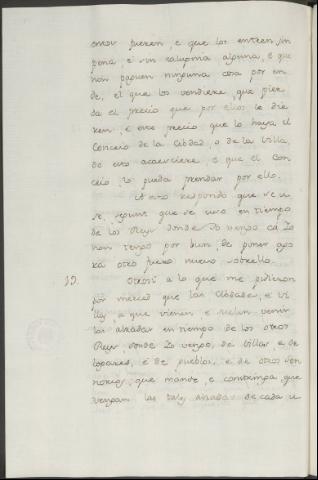 omor fueren, e que los entren sin
pena, e sin calupnia alguna, e que
non paguen ninguna cosa por en
de, el que los vendiere, que pier
da el precio que por ellos le die
ren, e este precio que lo haya el
Conceio de la Cibdad, o de la Villa,
do esto acaesciere, e que el con
ceio, lo pueda prendar por ello.
A esto respondo que se u
se, segunt que se usó en tiempo
de los Reys donde Yo vengo ca Yo
non tengo por bien, de poner ago
ra otro fuero nuevo sobrello.
19. Otrosi a lo que me pidieron
por merced que las Cibdades, e Vi
llas a que vienen, e suelen venir
las alzadas en tiempo de los otros
Reys, donde Yo vengo, de Villas, e de
logares, e de pueblos, e de otros Sen
norios, que mande, e constringa, que
vengan las tales alzadas de cada u